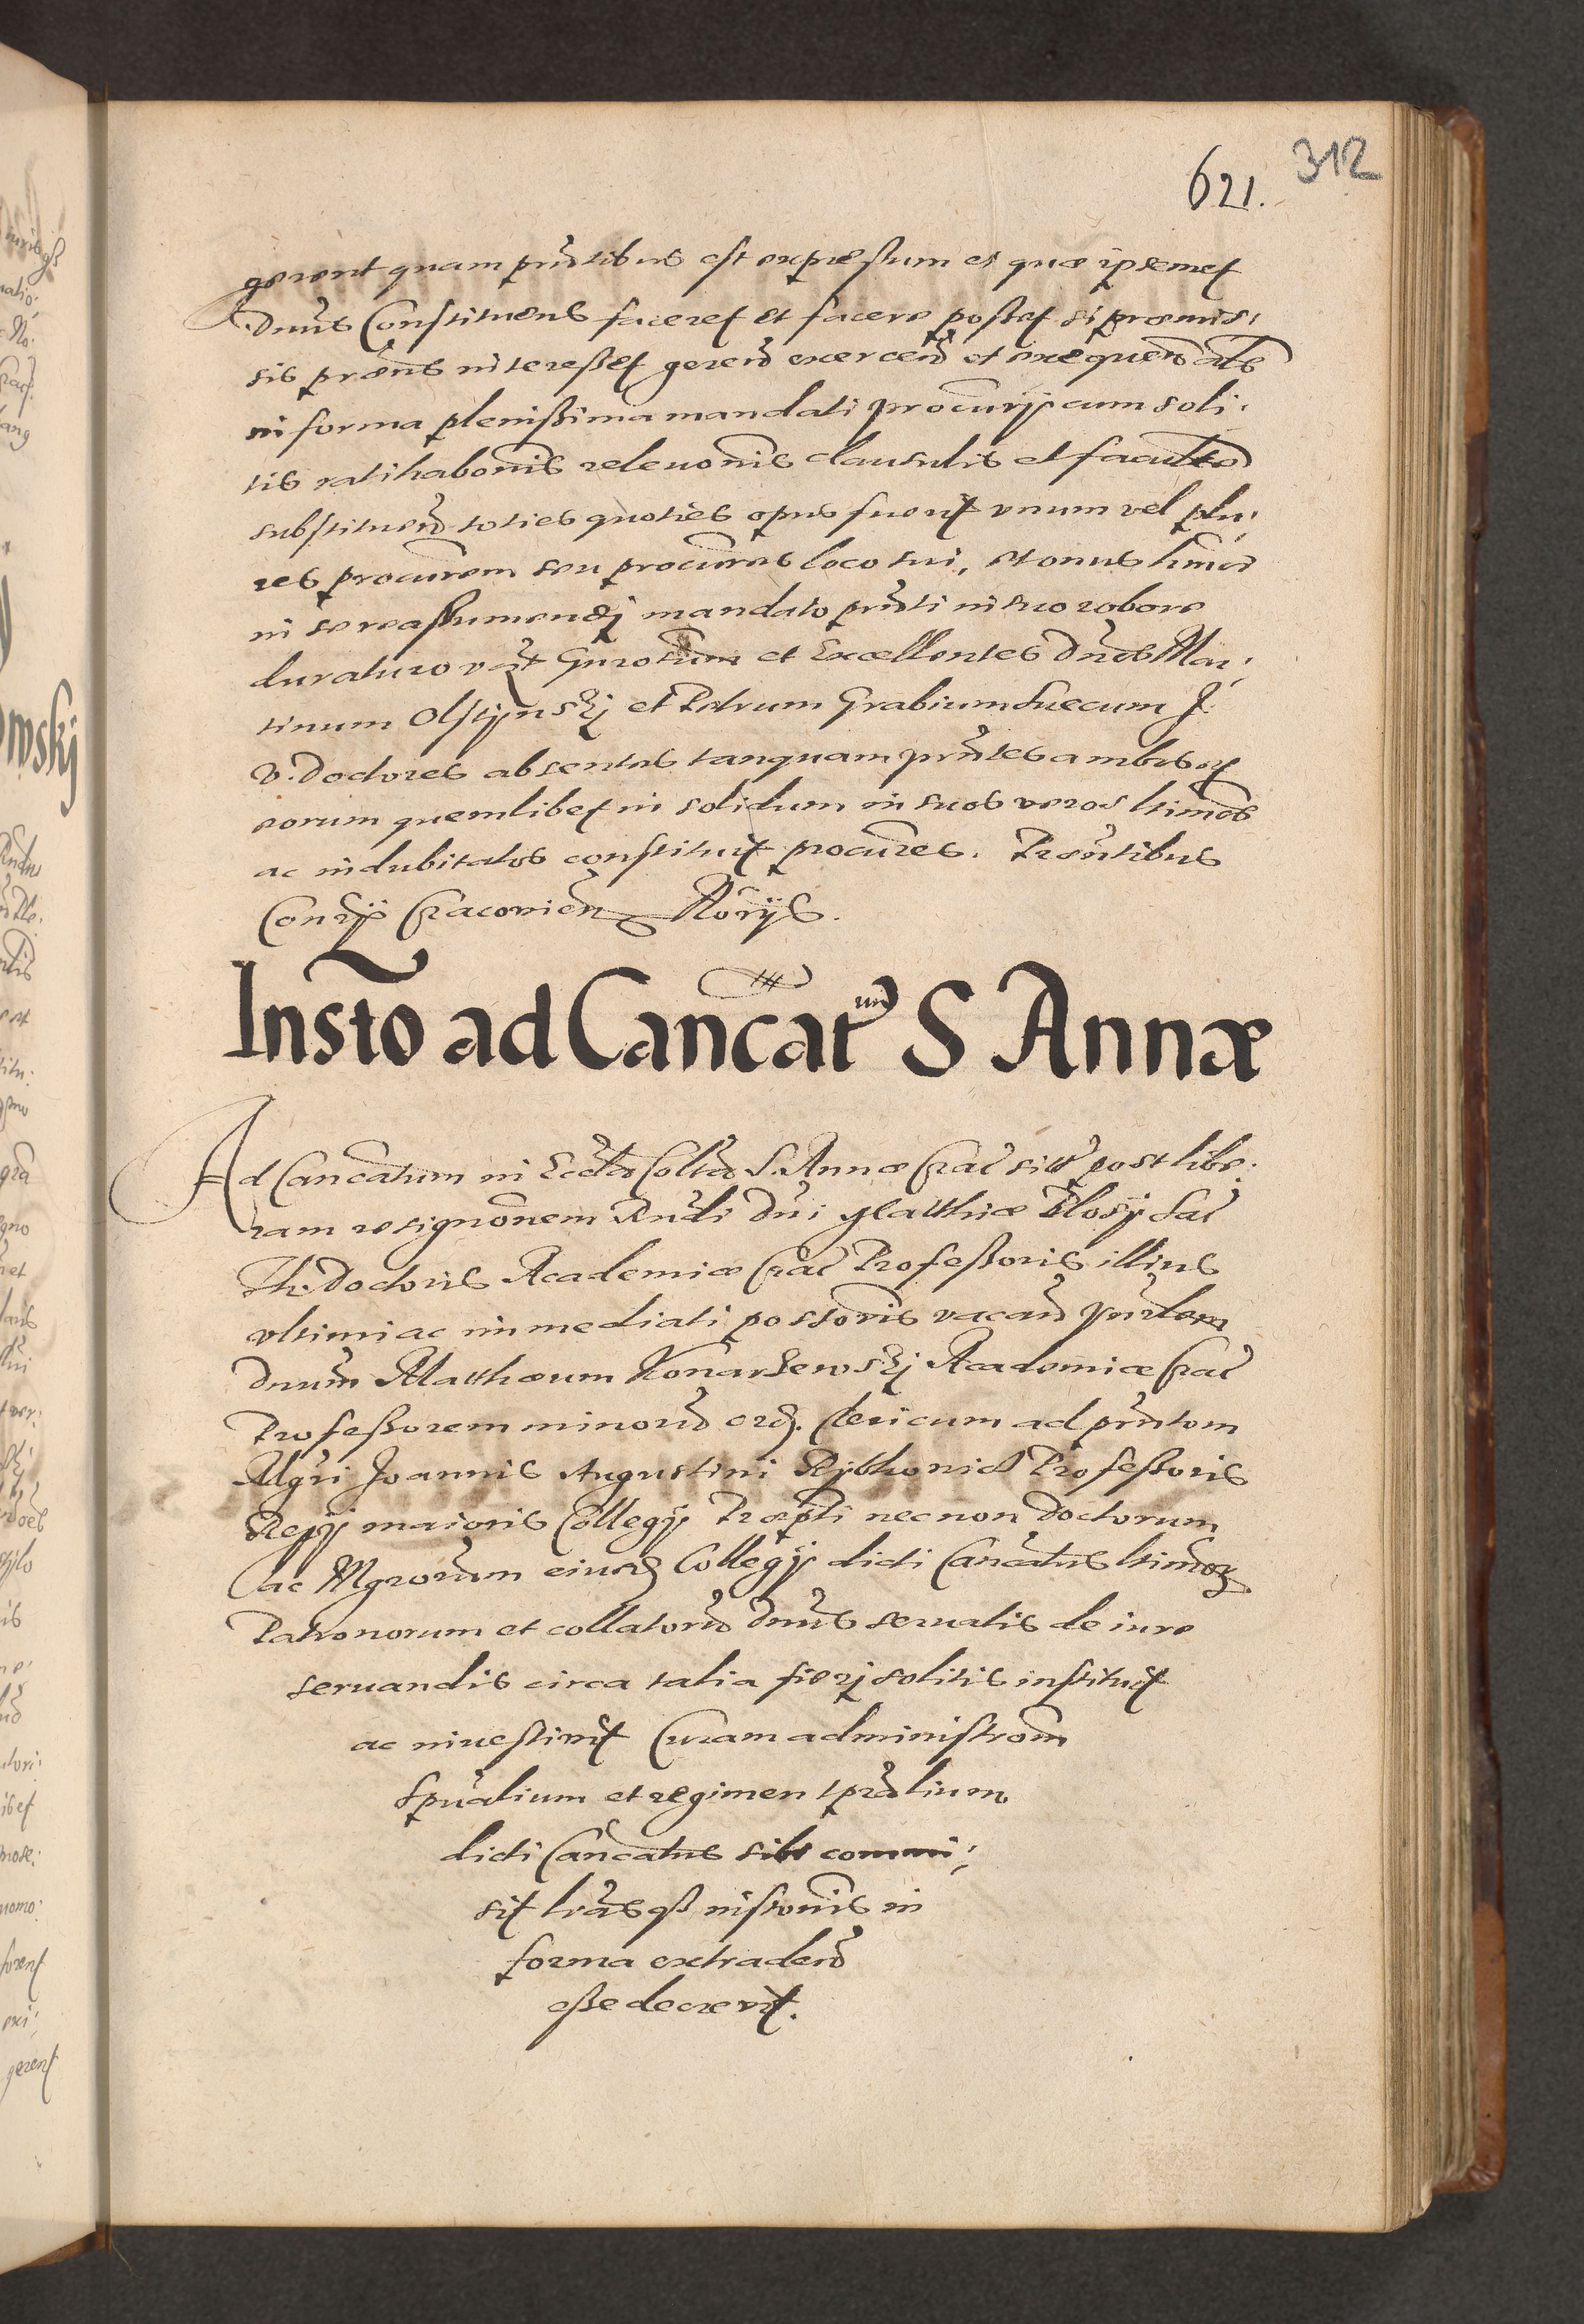 621. 312
gerent quam pñtibus est expressum et quæ ipsemet
Dnus Constituens faceret et facere posset si præmis:
sis præns interesset gerend exercend et exequend als
in forma plenissima mandati procurij cum soli:
tis ratihabonis releuonis clausulis et facultte
substituend toties quoties opus fuerit vnum vel plu:
res procurem seu procures loco sui, et onus hmoi
in se reassumendj mandato pñti in suo robore
duraturo vz Gnrosum et Excellentes Dnos Mar:
tinum Olstijnskj et Petrum Grabium Suecum J.
V. Doctores absentes tanquam pñtes ambos et
eorum quemlibet in solidum in suos veros ltimos
ac indubitatos constituit procures. Præntibus
Consrij Cracovien Norijs.
Insto ad Cancat um S Annæ
Ad Cancatum in Eccla Collta S. Annæ Crac situ post libe:
ram resignonem Rndi Dni Matthiæ Blosij Sac
Th. Doctoris Academiæ Crac Professoris illius
vltimi ac immediati possoris vacan
Dnum Matthæum Konarzewskj Academiæ Crac
Professorem minorū ord. Clericum ad pñtem
Mgri Joannis Augustini Professoris
maioris Collegij Præpti nec non Doctorum
ac Mgrorum eiusd Collegij dicti Cancatus ltimor
Patronorum et collatorū Dnus seruatis de iure
seruandis circa talia fierj solitis instituit
ac inuestiuit Curam administrom
spualium et regimen tpralium
dicti Cancatus sibi commi:
sit lras qz instonis in
forma extradend
esse decreuit.